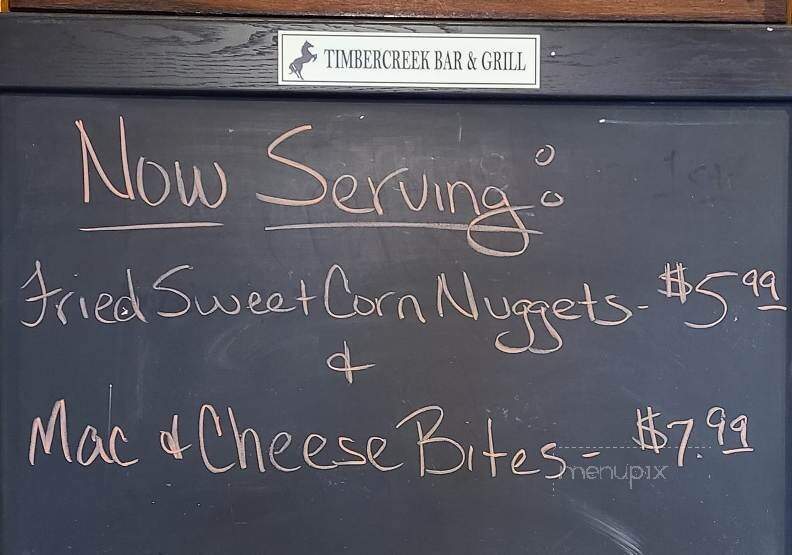 TIMBERCREEK BAR & GRILL
Now Serving:
Fried Sweet Corn Nuggets - $5.99
&
Mac & Cheese Bites - $7.99
menupix